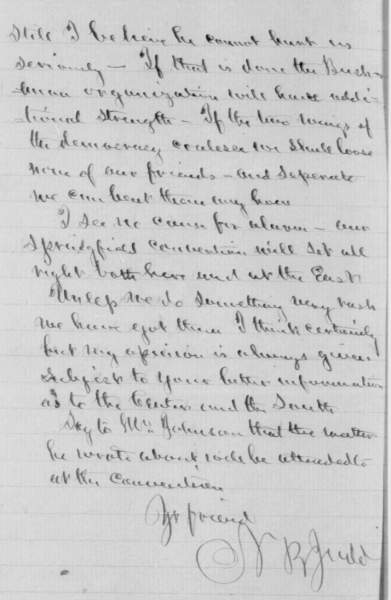 still I believe he cannot hurt us
seriously — If that is done the Buch-
anan organization will have addi-
tional strength — If the two wings of
the democracy coalesce we shall loose
none of our friends — and seperate
we can beat them any how
I see no cause for alarm — our
Springfield convention will set all
right both here and at the East
Unless we do something very rash
we have got them I think certainly
but my opinion is always given
subject to your better information
as to the Center and the South
Say to Mr Johnson that the matter
he wrote about will be attended to
at the Convention
Yr friend
N B Judd